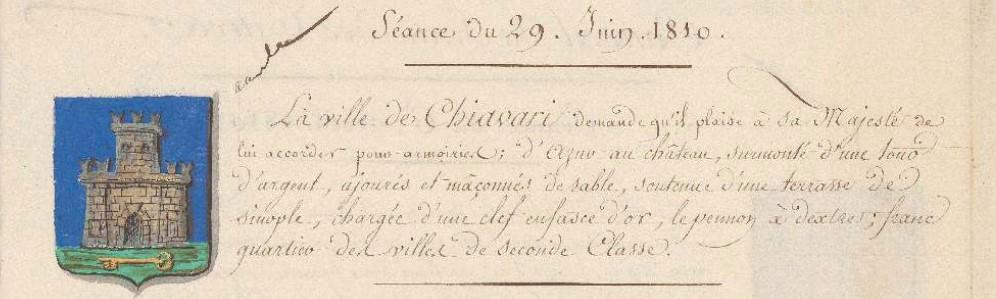 Séance du 29. Juin 1810.
La ville de Chiavari demande qu'il plaise à Sa Majesté de
lui accorder pour armoiries; d'azur au château, surmonté d'une tour
d'argent, ajourés et maçonnés de sable, soutenue d'une terrasse de
sinople, chargée d'une clef enfasce d'or, le pennon à dextre; franc
quartier des villes de seconde Classe.